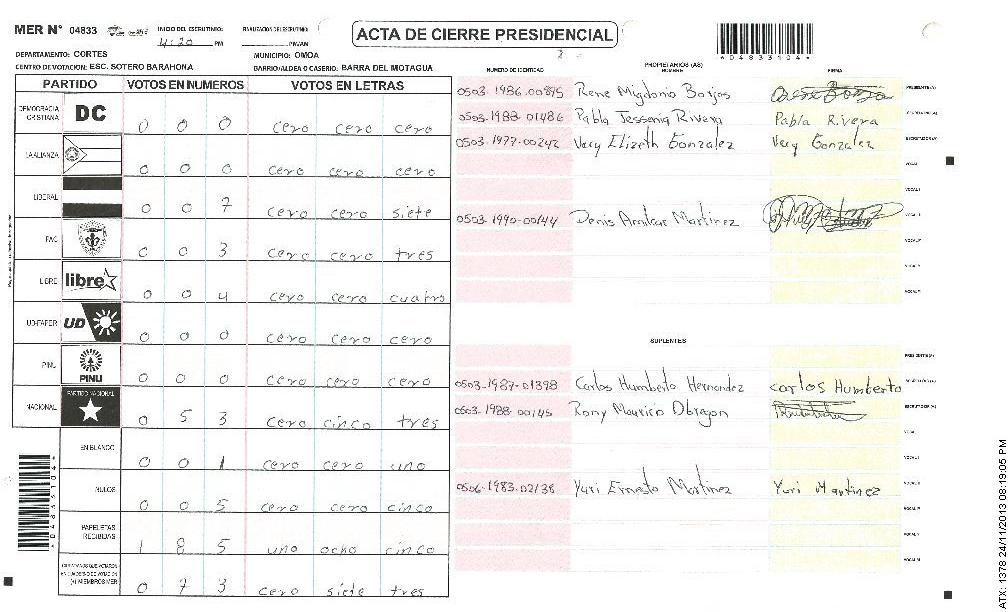 MER N° 04833
INICIO DEL ESCRUTINIO: 4:20 PM
FINALIZACION DEL ESCRUTINIO: PM/AM
ACTA DE CIERRE PRESIDENCIAL
2
*04833104*
DEPARTAMENTO: CORTES
MUNICIPIO: OMOA
CENTRO DE VOTACION: ESC. SOTERO BARAHONA
BARRIO/ALDEA O CASERIO: BARRA DEL MOTAGUA
PARTIDO VOTOS EN NUMEROS VOTOS EN LETRAS
DEMOCRACIA CRISTIANA DC 0 0 0 cero cero cero
LA ALIANZA 0 0 0 cero cero cero
LIBERAL 0 0 7 cero cero siete
PAC 0 0 3 cero cero tres
LIBRE libre 0 0 4 cero cero cuatro
UD-FAPER UD 0 0 0 cero cero cero
PINU PINU 0 0 0 cero cero cero
NACIONAL PARTIDO NACIONAL 0 5 3 cero cinco tres
EN BLANCO 0 0 1 cero cero uno
NULOS 0 0 5 cero cero cinco
PAPELETAS RECIBIDAS 1 8 5 uno ocho cinco
CIUDADANOS QUE VOTARON EN CUADERNO DE VOTACION (+) MIEMBROS MER 0 7 3 cero siete tres
NUMERO DE IDENTIDAD PROPIETARIOS (AS) NOMBRE FIRMA
0503-1986-00895 Rene Migdonio Borjas PRESIDENTE(A)
0503-1988-01486 Pabla Jessenia Rivera Pabla Rivera SECRETARIO(A)
0503-1977-00242 Very Elizeth Gonzalez Very Gonzalez ESCRUTADOR(A)
VOCAL I
VOCAL II
0503-1990-00144 Denis Amilcar Martinez
SUPLENTES
PRESIDENTE(A)
0503-1987-01398 Carlos Humberto Hernandez Carlos Humberto SECRETARIO(A)
0503-1988-00145 Rony Mauricio Obregon ESCRUTADOR(A)
0506-1983-02138 Yuri Ernesto Martinez Yuri Martinez
*04833104*
ATX: 1378 24/11/2013 08:19:05 PM